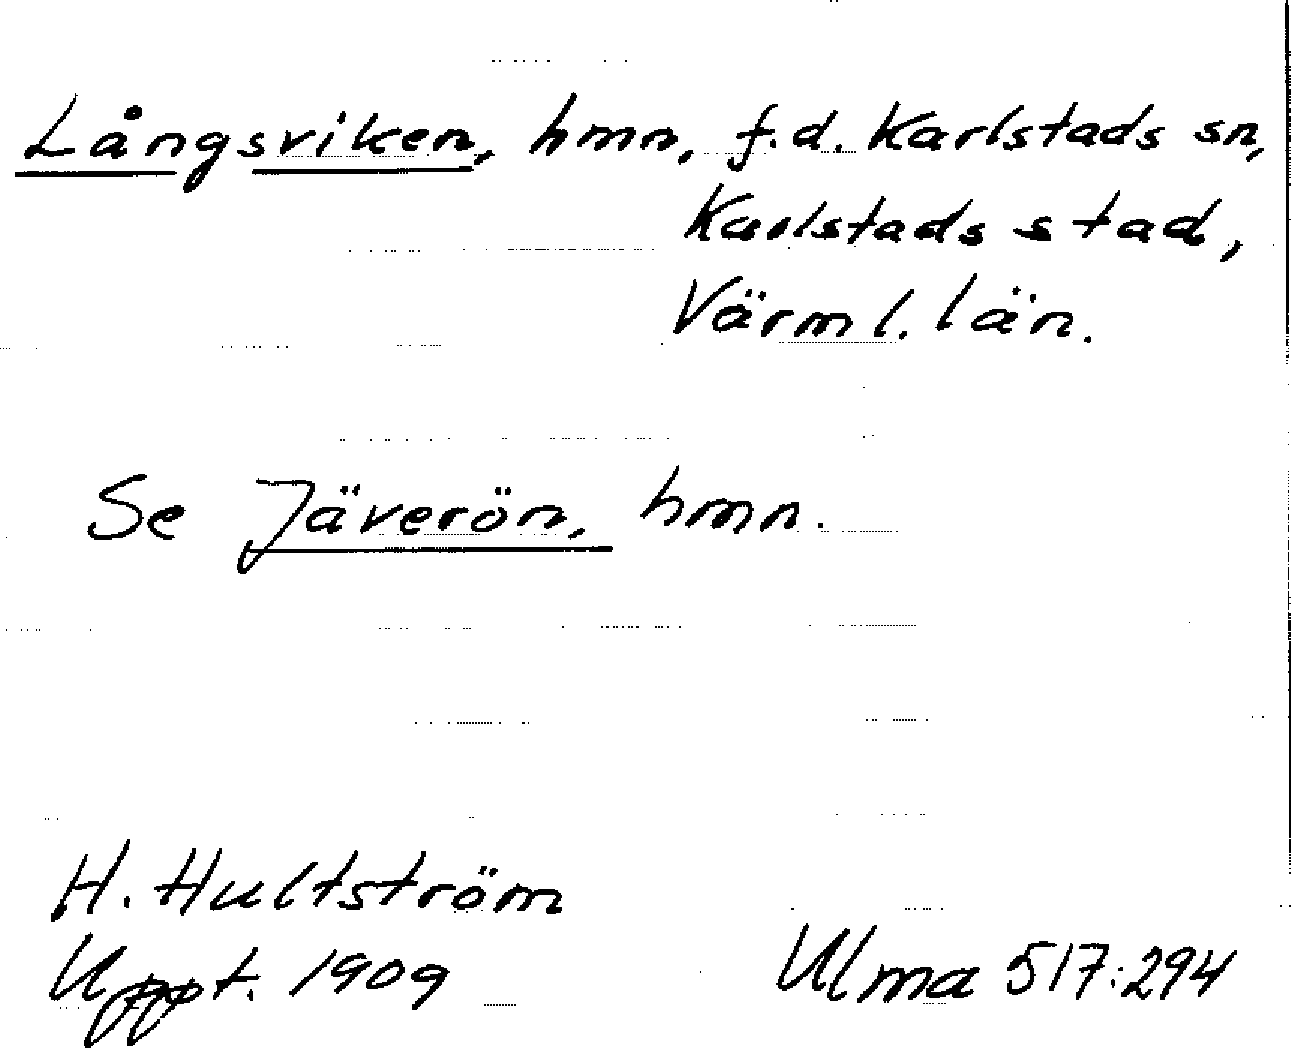 Långsviken, hmn, f.d. Karlstads sn,
Karlstads stad,
Värml. län.
Se Jäverön, hmn.
H. Hultström
Uppt. 1909
Ulma 517:294